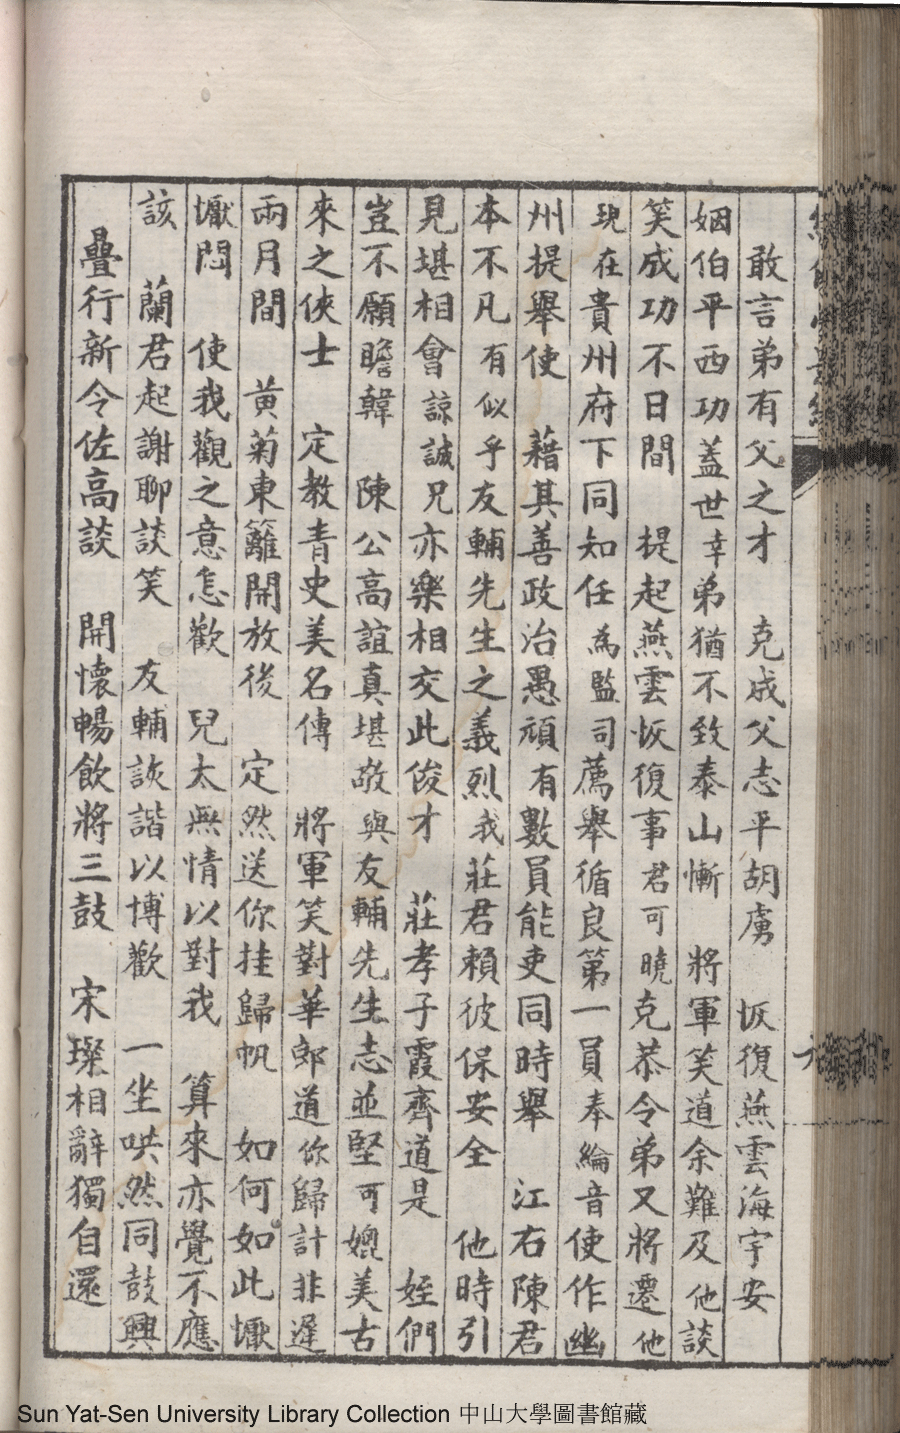 敢言弟有父之才　克成父志平胡虜　恢復燕雲海宇安
姻伯平西功蓋世幸弟猶不致泰山慚　將軍笑道余難及他談
笑成功不日間　提起燕雲恢復事君可曉克恭令弟又將遷他
現在貴州府下同知任為監司薦舉循良第一員奉綸音使作幽
州提舉使　藉其善政治愚頑有數員能吏同時舉　江右陳君
本不凡有似乎友輔先生之義烈我莊君賴彼保安全　他時引
見堪相會諒誠兄亦樂相交此俊才　莊孝子霞齊道是　姪們
豈不願瞻韓　陳公高誼真堪敬與友輔先生志並堅可媲美古
來之俠士　定教青史美名傳　將軍笑對華郎道你歸計非遲
兩月間　黃菊東籬開放後　定然送你挂歸帆　如何如此懨
懨悶　使我觀之意怎歡　兒太無情以對我　算來亦覺不應
該　蘭君起謝聊談笑　友輔詼諧以博歡　一坐哄然同鼓興
疊行新令佐高談　開懷暢飲將三鼓　宋璨相辭獨自還
Sun Yat-Sen University Library Collection 中山大學圖書館藏